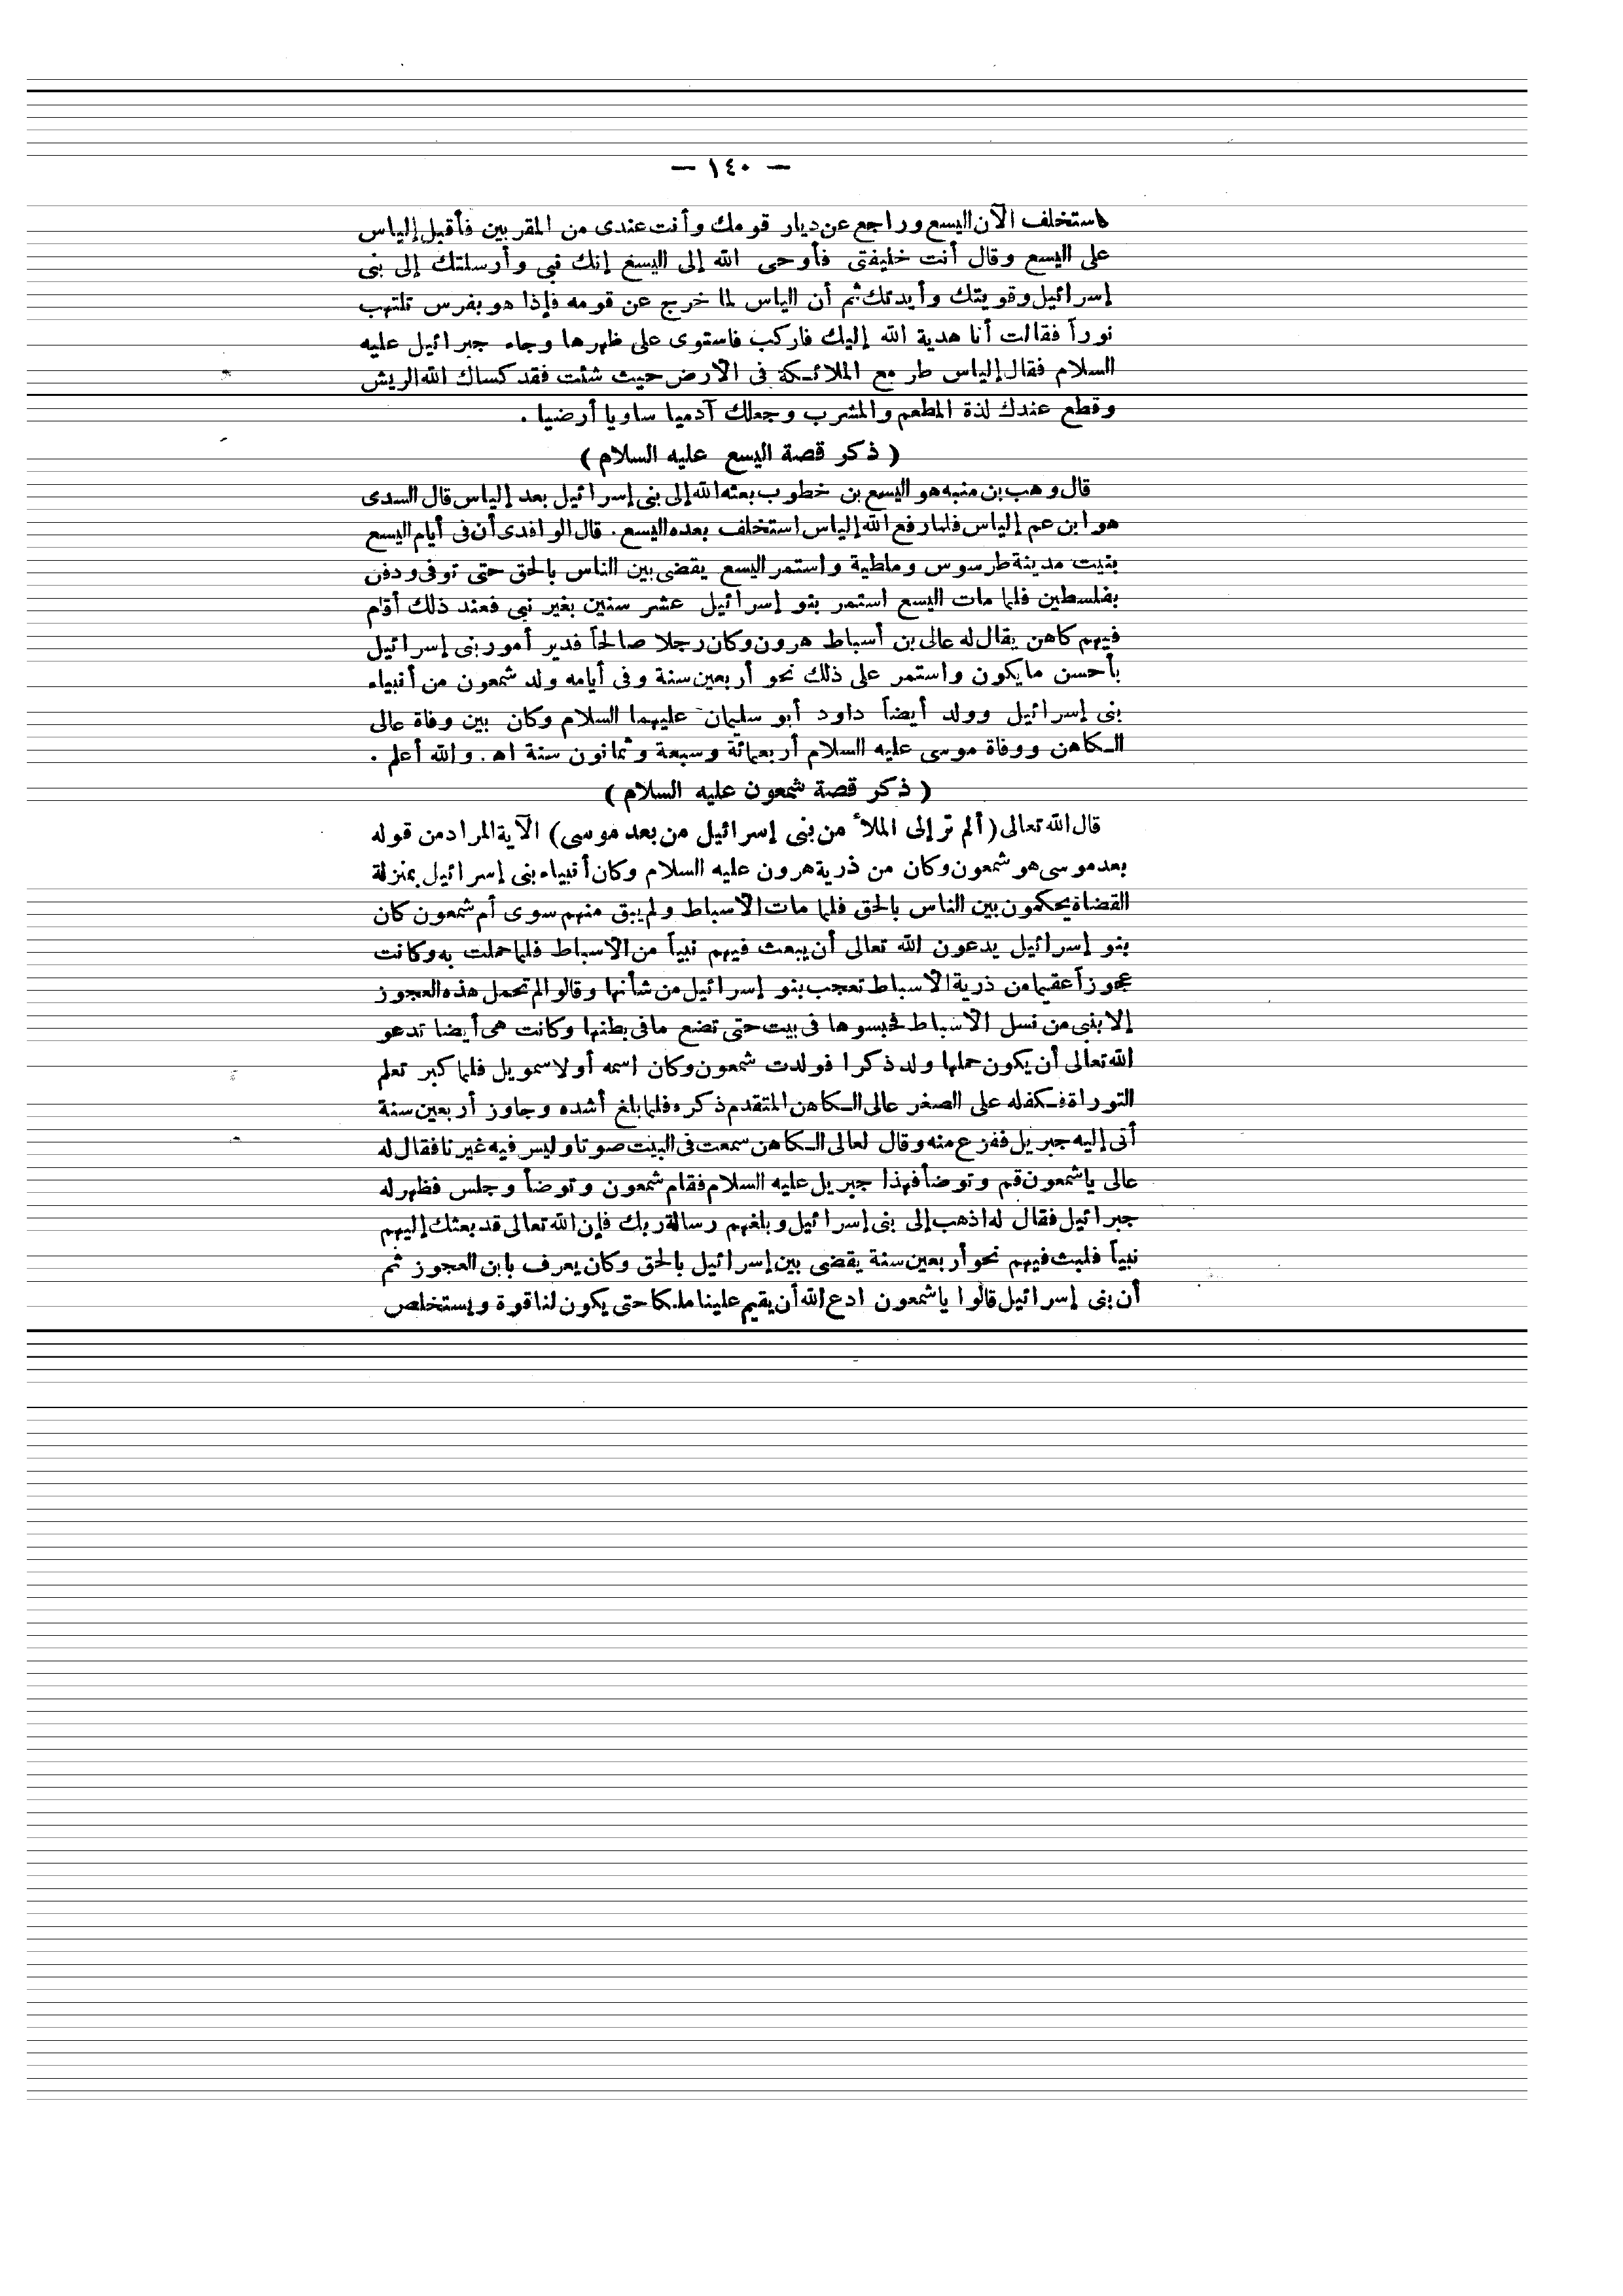 — ١٤٠ —
فاستخلف الآن اليسع وراجع عن ديار قومك وأنت عندى من المقربين فأقبل إلياس
على اليسع وقال أنت خليفتى فأوحى الله إلى اليسع إنك نبى وأرسلتك إلى بنى
إسرائيل وقويتك وأيدتك ثم أن الياس لما خرج عن قومه فإذا هو بفرس تلتهب
نوراً فقالت أنا هدية الله إليك فاركب فاستوى على ظهرها وجاء جبرائيل عليه
السلام فقال إلياس طر مع الملائكة فى الارض حيث شئت فقد كساك الله الريش
وقطع عندك لذة المطعم والمشرب وجعلك آدميا ساويا أرضيا .
( ذكر قصة اليسع عليه السلام )
قال وهب بن منبه هو اليسع بن خطوب بعثه الله إلى بنى إسرائيل بعد إلياس قال السدى
هو ابن عم إلياس فلما رفع الله إلياس استخلف بعده اليسع . قال الوافدى أن فى أيام اليسع
بنيت مدينة طرسوس وملطية واستمر اليسع يقضى بين الناس بالحق حتى توفى ودفن
بفلسطين فلما مات اليسع استمر بنو إسرائيل عشر سنين بغير نبى فعند ذلك أقام
فيهم كاهن يقال له عالى بن أسباط هرون وكان رجلا صالحاً فدبر أمور بنى إسرائيل
بأحسن ما يكون واستمر على ذلك نحو أربعين سنة وفى أيامه ولد شمعون من أنبياء
بنى إسرائيل وولد أيضاً داود أبو سليمان عليهما السلام وكان بين وفاة عالى
الكاهن ووفاة موسى عليه السلام أربعمائة وسبعة وثمانون سنة اه . والله أعلم .
( ذكر قصة شمعون عليه السلام )
قال الله تعالى (ألم تر إلى الملأ من بنى إسرائيل من بعد موسى) الآية المراد من قوله
بعد موسى هو شمعون وكان من ذرية هرون عليه السلام وكان أنبياء بنى إسرائيل بمنزلة
القضاة يحكمون بين الناس بالحق فلما مات الاسباط ولم يبق منهم سوى أم شمعون كان
بنو إسرائيل يدعون الله تعالى أن يبعث فيهم نبياً من الاسباط فلما حملت به وكانت
عجوزاً عقيما من ذرية الاسباط تعجب بنو إسرائيل من شأنها وقالوا لم تحمل هذه العجوز
إلا بنى من نسل الاسباط فحبسوها فى بيت حتى تضع مافى بطنها وكانت هى أيضا تدعو
الله تعالى أن يكون حملها ولد ذكرا فولدت شمعون وكان اسمه أولا سمويل فلما كبر تعلم
التوراة فكفله على الصغر عالى الكاهن المتقدم ذكره فلما بلغ أشده وجاوز أربعين سنة
أتى إليه جبريل ففزع منه وقال لعالى الكاهن سمعت فى البيت صوتا وليس فيه غيرنا فقال له
عالى ياشمعون قم وتوضأ فهذا جبريل عليه السلام فقام شمعون وتوضأ وجلس فظهر له
جبرائيل فقال له اذهب إلى بنى إسرائيل وبلغهم رسالة ربك فإن الله تعالى قد بعثك إليهم
نبياً فلبث فيهم نحو أربعين سنة يقضى بين إسرائيل بالحق وكان يعرف بابن العجوز ثم
أن بنى إسرائيل قالوا ياشمعون ادع الله أن يقيم علينا ملكا حتى يكون لنا قوة ويستخلص